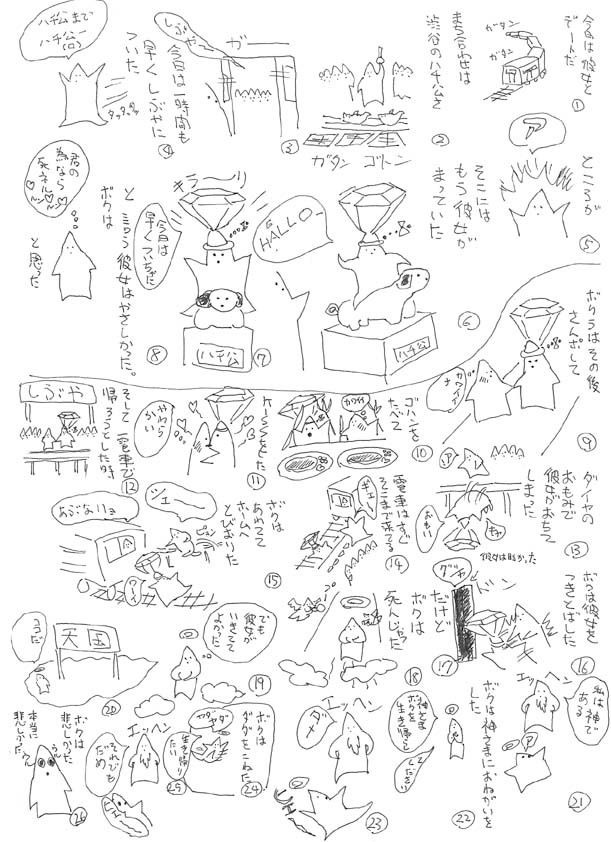 今日は彼女と
デートだ
ガタン
ガタン
①
まち合わせは
渋谷のハチ公さ
②
ガタン ゴトン
ガー
③
しぶやー
今日は一時間も
早くしぶやに
ついた
④
ハチ公まで
ハチ公!
タッタッタッ
ところが
ア
⑤
そこには
もう彼女が
まっていた
ハチ公
⑥
HALLO
キラーリ
ハチ公
⑦
今日は
早くついちゃた
⑧
と言う彼女はやさしかった。
ボクは
君の
為なら
死ネル
ルン
ルン
と思った
ボクラはその後
さんポして
カワイイナ
⑨
ゴハンを
たべて
カワイイ
⑩
Kissをした
やわら
かい
⑪
そして電車で
帰ろうとした時
しぶや
⑫
ダイヤの
おもみで
彼女がおちて
しまった
ア
おもい
彼女は助かった
⑬
電車はすぐ
そこまで来てる
ギェー
⑭
ボクは
あわてて
ホームへ
とびおりた
ジェー
ピョン
あぶないョ
⑮
ボクは彼女を
つきとばした
⑯
ドン
グギャ
⑰
だけど
ボクは
死んじゃった
⑱
でも
彼女が
いきてて
よかった
⑲
天国
うだ
⑳
私は神で
ある
エッヘン
ア
㉑
ボクは神さまにおねがいを
した
神さま
ボクを
生き帰して
ください
㉒
エッヘン
ダメ
㉓
ボクは
ダダをこねた
ヤダ
ヤダ
生き帰り
たい
㉔
エッヘン
それでも
だめ
㉕
ボクは
悲しかった
本当に
悲しかった
㉖